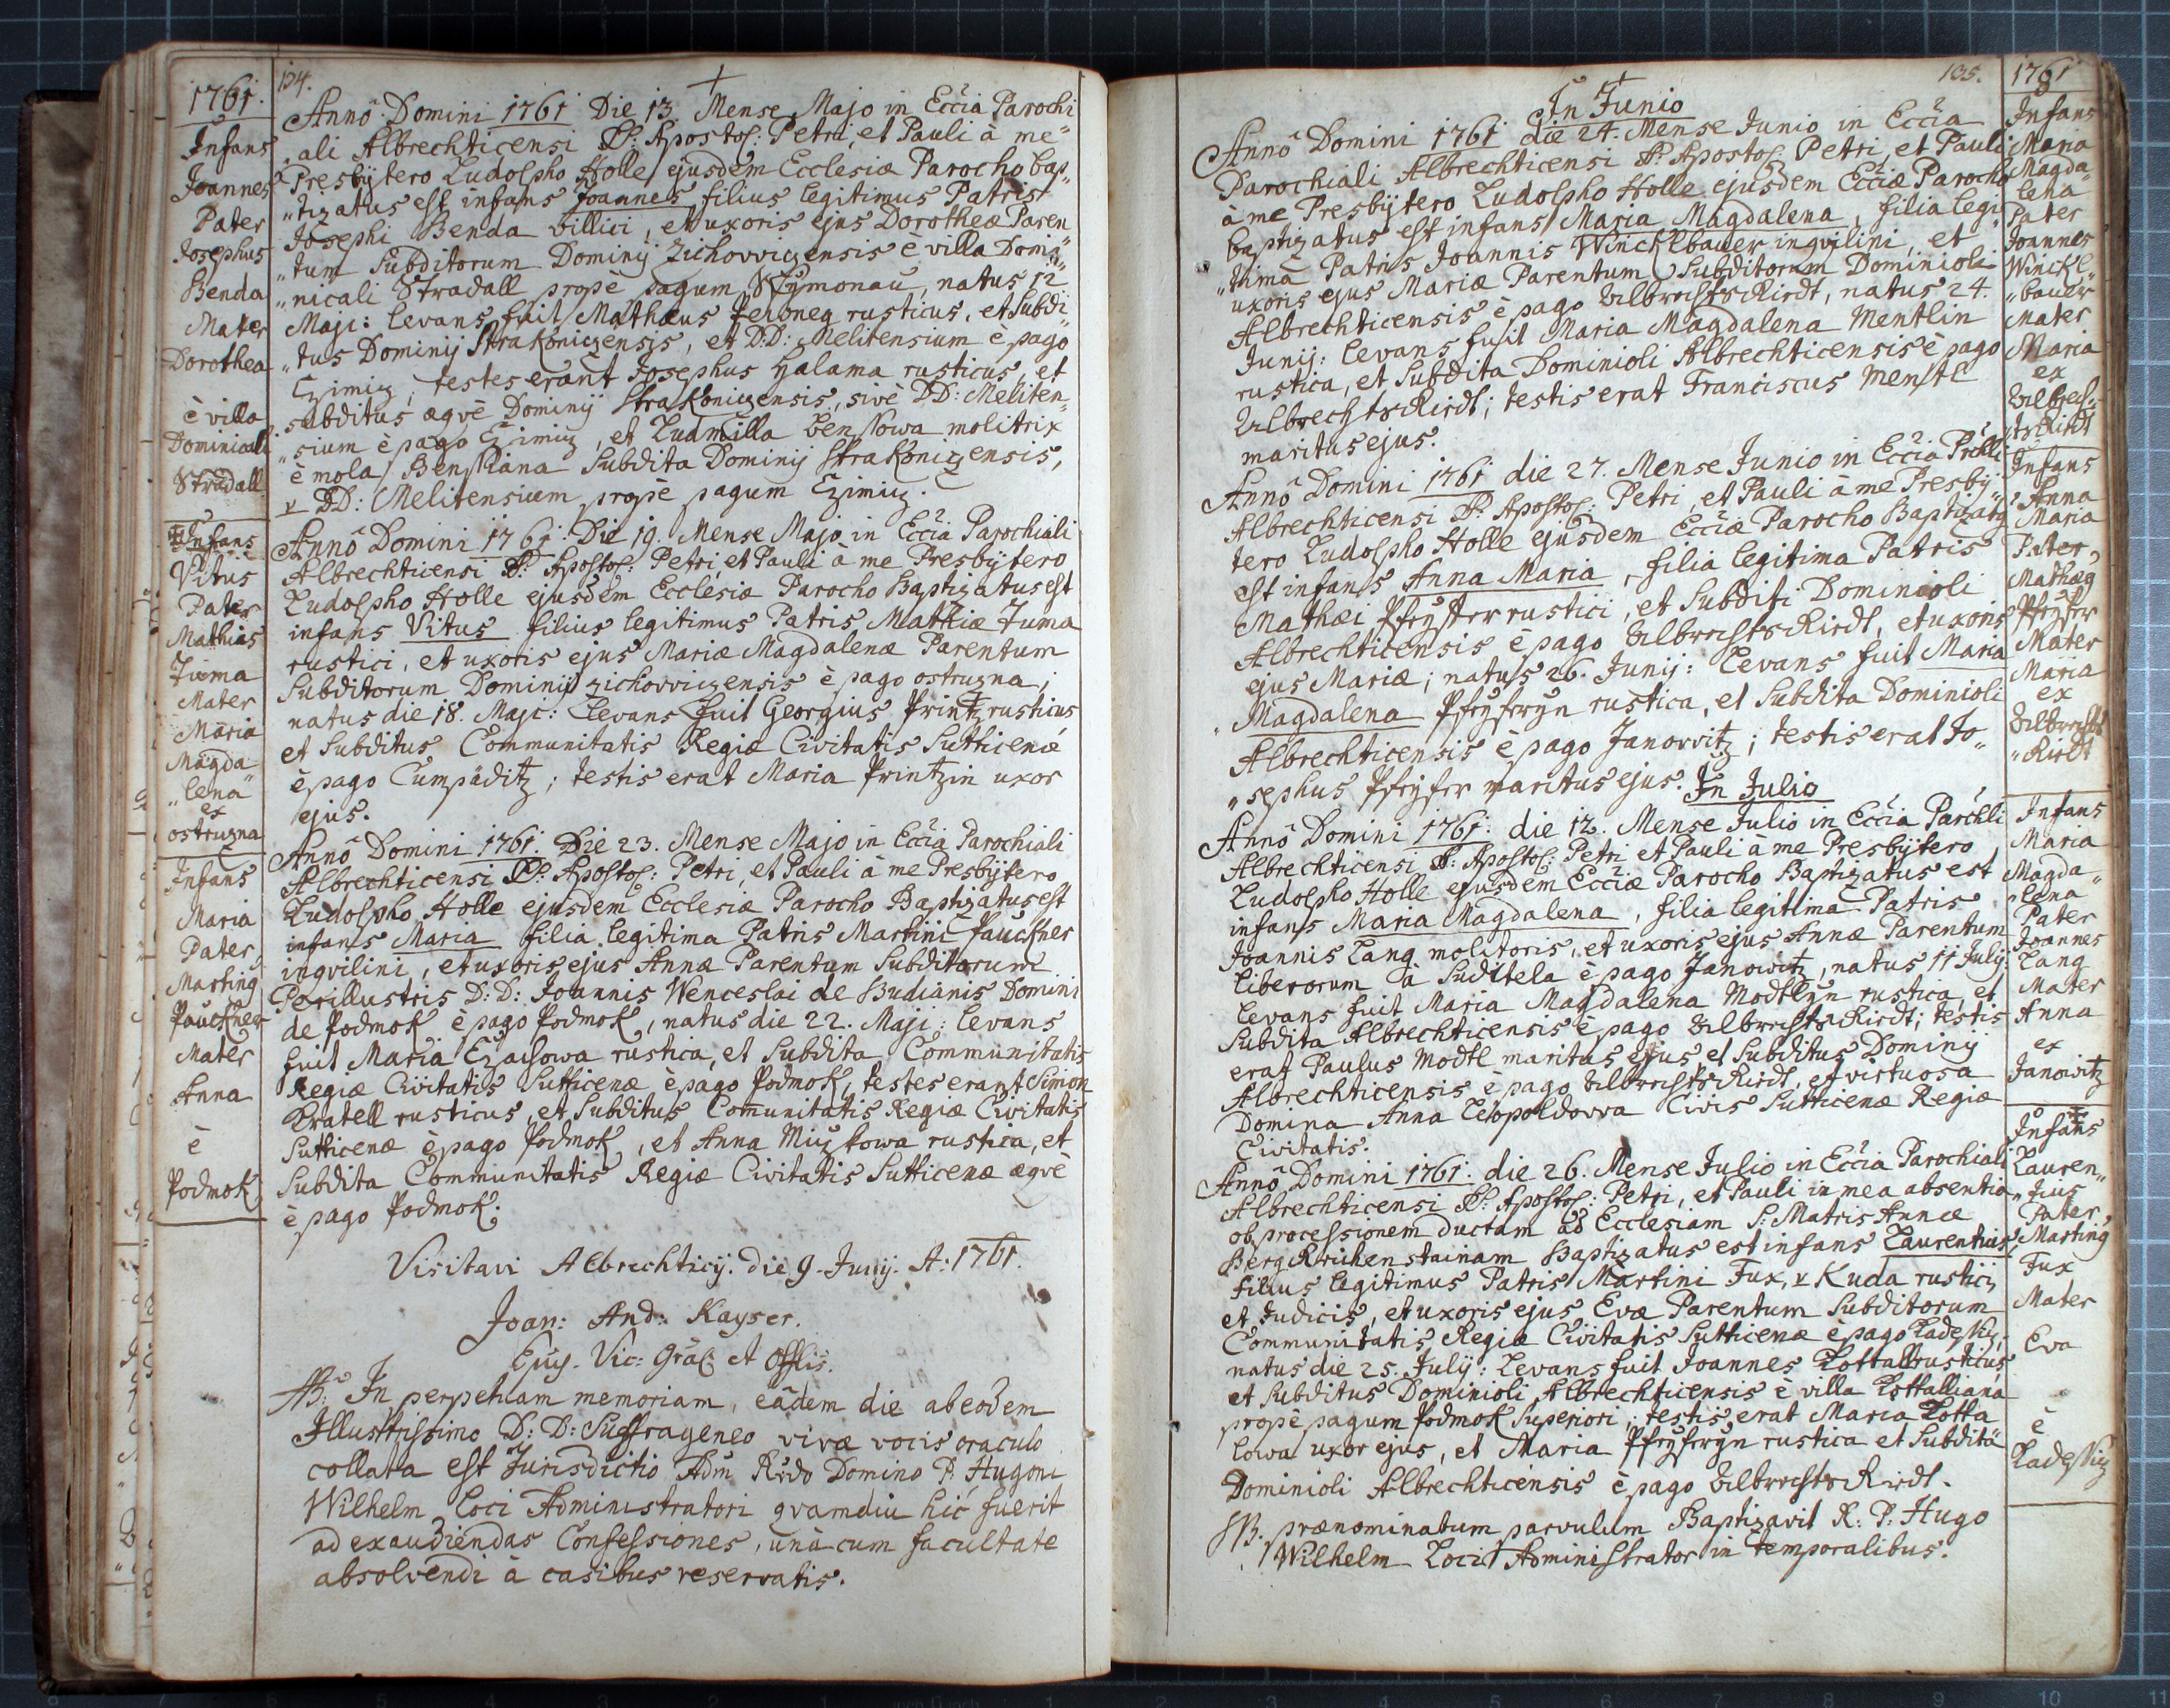 1761.
Infans
Joannes
Pater
Josephus
Benda
Mater
Dorothea
è villa
Dominicali
Stradall
Infans
Vitus
Pater
Mathias
Tuma
Mater
Maria
Magda
„lena
ex
ostruzna
Infans
Maria
Pater
Marting
Pauckner
Mater
Anna
è
Podmok
134.
Anno Domini 1761 Die 13 Mense Majo in Eccia Parochi
„ali Albrechticensi SS. Apostol: Petri, et Pauli à me
Presbytero Ludolpho Holle ejusdem Ecclesiæ Parocho bap„
„tizatus est infans Joannes, filius legitimus Patris
Josephi Benda villici, et uxoris ejus Dorotheæ Paren
„tum Subditorum Dominij Zichovvizensis è villa Domi„
„nicali Stradall propè pagum Szymonau, natus 12
Maji: levans fuit Mathæus rusticus, et Subdi„
„tus Dominij Strakonizensis, et D:D: Melitensium è pago
Czimiz, testes erant Josephus Halama rusticus, et
subditus æqvè Dominij Strakonizensis, sivè DD: Meliten„
„sium è pago Czimiz, et Ludmilla Benskowa molitrix
è mola Benskiana Subdita Dominij Strakonizensis,
v DD: Melitensium propè pagum Czimiz.
Anno Domini 1761. Die 19. Mense Majo in Eccia Parochiali
Albrechticensi SS. Apostol: Petri, et Pauli à me Presbytero
Ludolpho Holle ejusdem Ecclesiæ Parocho Baptizatus est
infans Vitus filius legitimus Patris Mathiæ Tuma
rustici, et uxoris ejus Mariæ Magdalenæ Parentum
Subditorum Dominij Zichovvizensis è pago ostruzna;
natus die 18. Maji: Levans fuit Georgius Printz rusticus
et Subditus Communitatis Regiæ Civitatis Sutticenæ
è pago Cumpäditz; testis erat Maria Printzin uxor
ejus.
Anno Domini 1761. Die 23. Mense Majo in Eccia Parochiali
Albrechticensi SS. Apostol: Petri, et Pauli à me Presbytero
Ludolpho Holle ejusdem Ecclesiæ Parocho Baptizatus est
infans Maria filia legitima Patris Martini Pauckner
inqvilini, et uxoris ejus Annæ Parentum Subditorum
Perillustris D: D: Joannis Wenceslai de Budianis Domini
de Podmok è pago Podmok, natus die 22. Maji: levans
fuit Maria Czachowa rustica, et Subdita Communitatis
Regiæ Civitatis Sutticenæ è pago Podmok, testes erant Simon
Kratell rusticus, et Subditus Communitatis Regiæ Civitatis
Sutticenæ è pago Podmok, et Anna Mizkowa rustica, et
Subdita Communitatis Regiæ Civitatis Sutticenæ æqvè
è pago Podmok.
Visitavi Albrechticij. die 9. Junij. A: 1761.
Joan: And: Kayser.
Epūs. Vic: Gräl: et Offlis.
NB: In perpetuam memoriam, eâdem die ab eodem
Illustrissimo D: D: Suffraganeo vivæ vocis oraculo
collata est Jurisdictio Adm Rndo Domino P. Hugoni
Wilhelm Loci Administratori qvamdiu hic fuerit
ad exaudiendas Confessiones, unà cum facultate
absolvendi à casibus reservatis.
135.
In Junio
Anno Domini 1761 die 24. Mense Junio in Eccia
Parochiali Albrechticensi SS. Apostol: Petri, et Pauli
à me Presbytero Ludolpho Holle ejusdem Ecciæ Parocho
baptizatus est infans Maria Magdalena, filia legi
„tima Patris Joannis Wincklbauer inqvilini, et
uxoris ejus Mariæ Parentum Subditorum Dominioli
Albrechticensis è pago Ulbrechtsriedt, natus 24.
Junij: levans fuit Maria Magdalena Mentlin
rustica, et Subdita Dominioli Albrechticensis è pago
Ulbrechtsriedt; testis erat Franciscus Mentl
maritus ejus.
Anno Domini 1761 die 27. Mense Junio in Eccia Prchli
Albrechticensi SS. Apostol: Petri, et Pauli à me Presby
tero Ludolpho Holle ejusdem Ecciæ Parocho Baptizatg
est infans Anna Maria, filia legitima Patris
Mathæi Pfeyffer rustici, et Subditi Dominioli
Albrechticensis è pago Ulbrechtsriedt, et uxoris
ejus Mariæ; natus 26. Junij: Levans fuit Maria
Magdalena Pfeyferyn rustica, et Subdita Dominioli
Albrechticensis è pago Janovvitz; testis erat Jo„
„sephus Pfeyfer maritus ejus.
In Julio
Anno Domini 1761. die 12. Mense Julio in Eccia Parchli
Albrechticensi SS. Apostol: Petri et Pauli à me Presbytero
Ludolpho Holle ejusdem Ecciæ Parocho Baptizatus est
infans Maria Magdalena, filia legitima Patris
Joannis Lang molitoris, et uxoris ejus Annæ Parentum
liberorum à Suditela è pago Janowitz, natus 11 July:
levans fuit Maria Magdalena Modtlyn rustica, et
Subdita Albrechticensis è pago Ulbrechtsriedt; testis
erat Paulus Modtl maritus ejus et Subditus Dominij
Albrechticensis è pago Ulbrechtsriedt, et virtuosa
Domina Anna Leopoldovva Civis Sutticenæ Regiæ
Civitatis.
Anno Domini 1761. die 26. Mense Julio in Eccia Parochiali
Albrechticensi SS. Apostol: Petri, et Pauli in mea absentia
ob processionem ductam ad Ecclesiam S: Matris Annæ
Baptizatus est infans Laurentius,
filius legitimus Patris Martini Fux, v Kuda rustici,
et Judicis, et uxoris ejus Evæ Parentum Subditorum
Communitatis Regiæ Civitatis Sutticenæ è pago
natus die 25. July: Levans fuit Joannes Kottall rusticus
et Subditus Dominioli Albrechticensis è villa Kottalliana
propè pagum Podmok Superiori; testis erat Maria Kotta
lowa uxor ejus, et Maria Pfeyferyn rustica et Subdita
Dominioli Albrechticensis è pago Ulbrechtsriedt.
NB. prænominatum parvulum Baptizavit R: P: Hugo
Wilhelm Loci Administrator in temporalibus.
1761
Infans
Maria
Magda
lena
Pater
Joannes
Winckl„
„bauer
Mater
Maria
ex
Ulbrech„
„tsriedt
Infans
Anna
Maria
Pater
Mathæg
Pfeyfer
Mater
Maria
ex
Ulbrechts
„riedt
Infans
Maria
Magda„
„lena
Pater
Joannes
Lang
Mater
Anna
ex
Janowitz
Infans
Lauren„
„tius
Pater
Marting
Fux
Mater
Eva
è